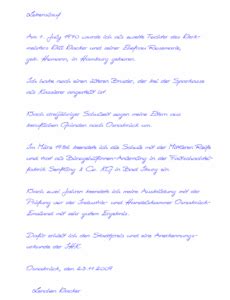 Lebenslauf
Am 7. July 1970 wurde ich als zweite Tochter des Werk-
meisters Willi Wacker und seiner Ehefrau Rosemarie,
geb. Hamann, in Hamburg geboren.
Ich habe noch einen älteren Bruder, der bei der Sparkasse
als Kassierer angestellt ist.
Nach dreijähriger Schulzeit zogen meine Eltern aus
beruflichen Gründen nach Osnabrück um.
Im März 1986 beendete ich die Schule mit der Mittleren Reife
und trat als Bürogehilfinnen-Anlernling in die
fabrik & Co. KG in Bad Iburg ein.
Nach zwei Jahren beendete ich meine Ausbildung mit der
Prüfung vor der Industrie- und Handelskammer Osnabrück-
Emsland mit sehr gutem Ergebnis.
Dafür erhielt ich den Stadtpreis und eine Anerkennungs-
urkunde der IHK.
Osnabrück, den 23.11.2009
Lieschen Wacker